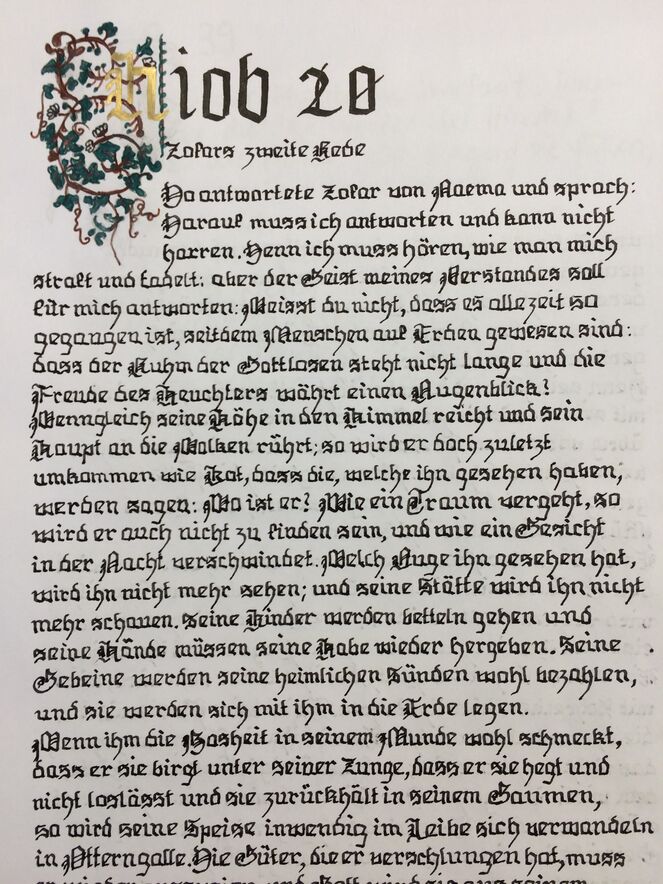 Hiob 20
Zofars zweite Rede
Da antwortete Zofar von Naema und sprach:
Darauf muss ich antworten und kann nicht
harren. Denn ich muss hören, wie man mich
straft und tadelt; aber der Geist meines Verstandes soll
für mich antworten: Weisst du nicht, dass es allezeit so
gegangen ist, seitdem Menschen auf Erden gewesen sind:
dass der Ruhm der Gottlosen steht nicht lange und die
Freude des Heuchlers währt einen Augenblick?
Wenngleich seine Höhe in den Himmel reicht und sein
Haupt an die Wolken rührt; so wird er doch zuletzt
umkommen wie Kot, dass die, welche ihn gesehen haben,
werden sagen: Wo ist er? Wie ein Traum vergeht, so
wird er auch nicht zu finden sein, und wie ein Gesicht
in der Nacht verschwindet. Welch Auge ihn gesehen hat,
wird ihn nicht mehr sehen; und seine Stätte wird ihn nicht
mehr schauen. Seine Kinder werden betteln gehen und
seine Hände müssen seine Habe wieder hergeben. Seine
Gebeine werden seine heimlichen Sünden wohl bezahlen,
und sie werden sich mit ihm in die Erde legen.
Wenn ihm die Bosheit in seinem Munde wohl schmeckt,
dass er sie birgt unter seiner Zunge, dass er sie hegt und
nicht loslässt und sie zurückhält in seinem Gaumen,
so wird seine Speise inwendig im Leibe sich verwandeln
in Otterngalle. Die Güter, die er verschlungen hat, muss